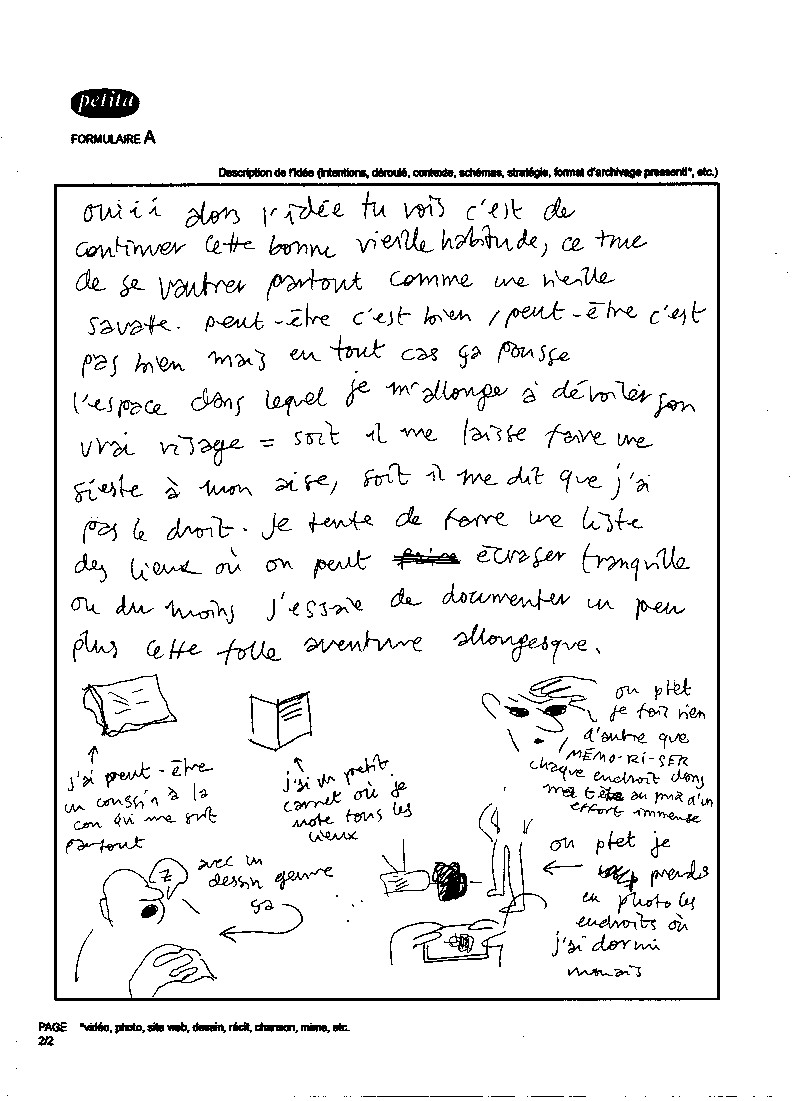 petita
FORMULAIRE A
Description de l'idée (intentions, déroulé, contexte, schémas, stratégie, format d'archivage pressenti*, etc.)
ouiii alors l'idée tu vois c'est de
continuer cette bonne vieille habitude, ce truc
de se vautrer partout comme une vieille
savate. peut-être c'est bien / peut-être c'est
pas bien mais en tout cas ça pousse
l'espace dans lequel je m'allonge à dévoiler son
vrai visage = soit il me laisse faire une
sieste à mon aise, soit il me dit que j'ai
pas le droit. Je tente de faire une liste
des lieux où on peut écraser tranquille
ou du moins j'essaie de documenter un peu
plus cette folle aventure allongesque.
j'ai peut-être
un coussin à la
con qui me suit
partout
j'ai un petit
carnet où je
note tous les
lieux
ou ptet
je fais rien
d'autre que
MÉMO-RI-SER
chaque endroit dans
ma tête au prix d'un
effort immense
Z
avec un
dessin genre
ça
ou ptet je
prends
en photo les
endroits où
j'ai dormi
PAGE *vidéo, photo, site web, dessin, récit, chanson, mime, etc.
2/2